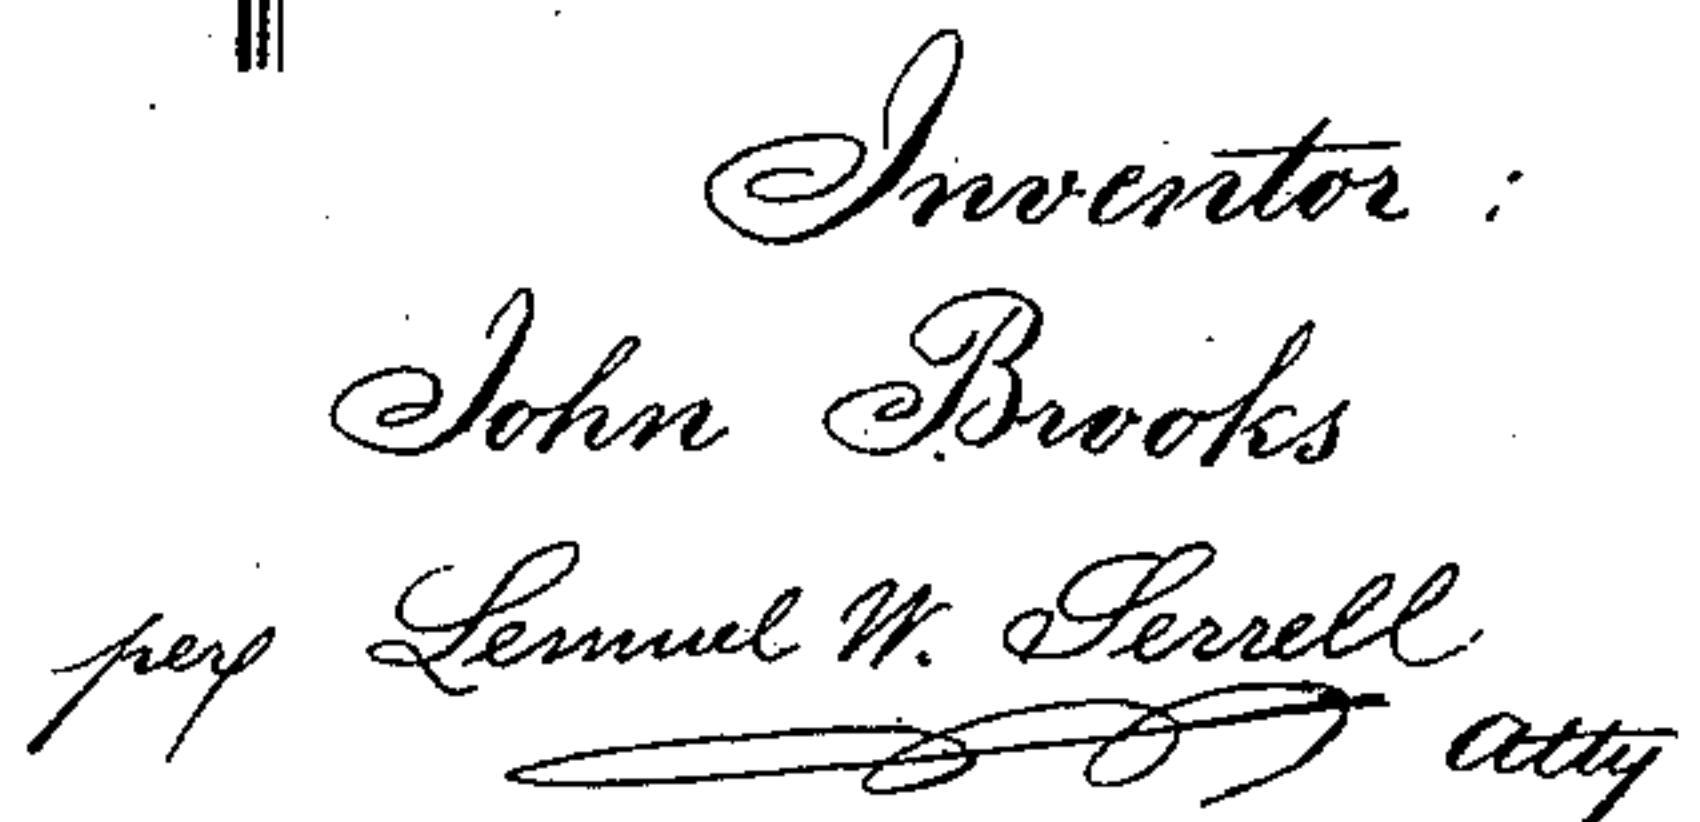 Inventor:
John Brooks
per Lemuel W. Serrell
atty